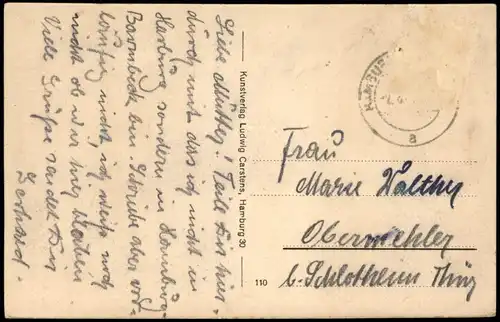 Liebe Mutter! Teile Dir hier-
durch mit das ich nicht in
Harburg sondern in Hamburg-
Barmbeck bin. Schreibe aber vor-
läufig nicht, ich weiß noch
nicht ob wir hier bleiben
Viele Grüße sendet Dir
Gerhard.
Kunstverlag Ludwig Carstens, Hamburg 30
110
HAMBURG
a
Frau
Marie Walther
Obermehler
b. Schlotheim Thür